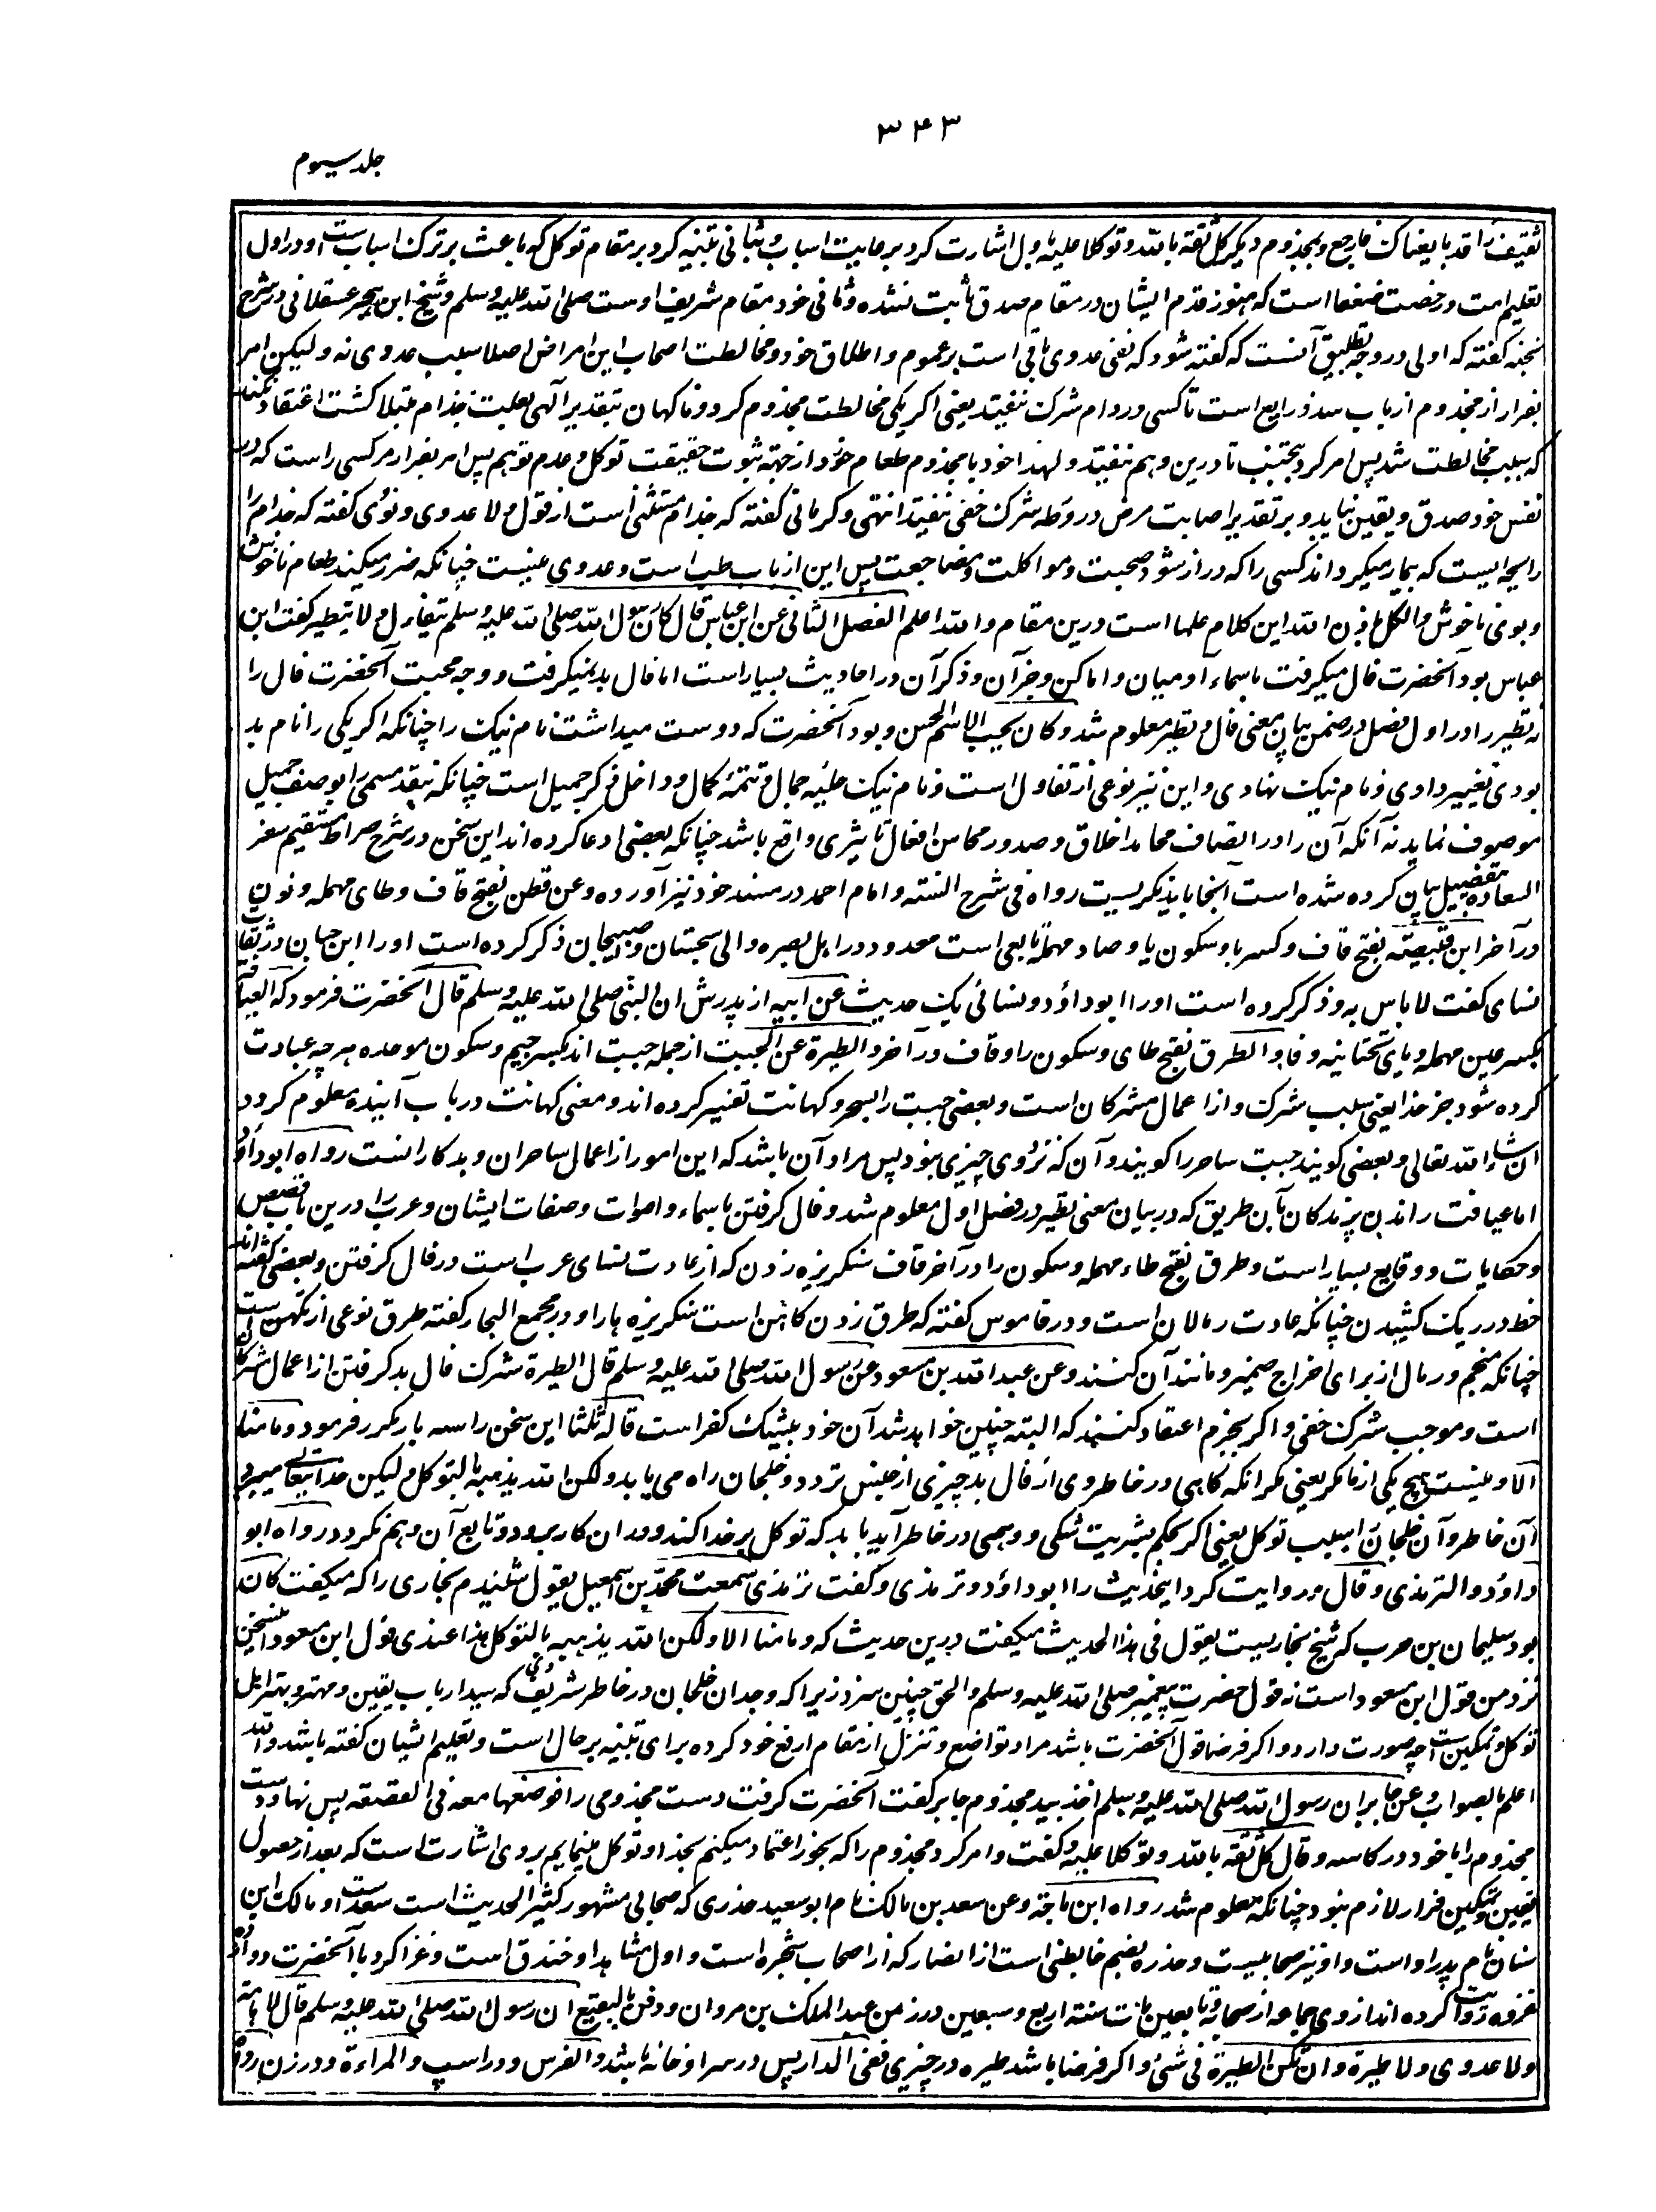 ۳۴۳
جلد سیوم
ثقیف را قد بایعناک فارجع و بمجذوم دیگر کل ثقة بالله و توکلا علیه باول اشارت کرد برعایت اسباب و بثانی تنبیه کرد بر مقام توکل که باعث بر ترک اسباب ست و در اول
تعلیم امت و رخصت ضعفا است که هنوز قدم ایشان در مقام صدق ثابت نشده و ثانی خود مقام شریف اوست صلی الله علیه وسلم و شیخ ابن حجر عسقلانی در شرح
نخبه گفته که اولی در وجه تطبیق آنست که گفته شود که نفی عدوی باقی است بر عموم و اطلاق خود و مخالطت اصحاب این امراض اصلا سبب عدوی نه و لیکن امر
بفرار از مجذوم از باب سد ذرایع است تا کسی در دام شرک نیفتد یعنی اگر یکی مخالطت مجذوم کرد و ناگهان بتقدیر آلهی بعلت جذام مبتلا گشت اعتقاد نکند
که بسبب مخالطت شد پس امر کرد بتجنب تا درین وهم نیفتد و لهذا خود با مجذوم طعام خورد از جهة ثبوت حقیقت توکل و عدم توهم پس امر بفرار مر کسی راست که در
نفس خود صدق و یقین نیابد و بر تقدیر اصابت مرض در ورطه شرک خفی نیفتد انتهی و کرمانی گفته که جذام مستثنی است از قول لا عدوی و نووی گفته که جذام را
رایحه ایست که بیمار میگرداند کسی را که دراز شود صحبت و مواکلت و مضاجعت پس این از باب طب است و عدوی نیست چنانکه ضرر میکند طعام ناخوش
و بوی ناخوش والکل باذن الله این کلام علما است درین مقام والله اعلم الفصل الثانی عن ابن عباس قال کان رسول الله صلی الله علیه وسلم یتفاءل ولا یتطیر گفت ابن
عباس بود آنحضرت فال میگرفت باسماء آدمیان و اماکن و جز آن و ذکر آن در احادیث بسیار است اما فال بد نمیگرفت و وجه محبت آنحضرت فال را
نه تطیر را در اول فصل در ضمن بیان معنی فال و تطیر معلوم شد و کان یحب الاسم الحسن و بود آنحضرت که دوست میداشت نام نیک را چنانکه اگر یکی را نام بد
بودی تغییر دادی و نام نیک نهادی و این نیز نوعی از تفاول است و نام نیک حلیه جمال و تتمه کمال و داخل ذکر جمیل است چنانکه نیقد مسمی را بوصف جمیل
موصوف نماید نه آنکه آن را در اتصاف محامد اخلاق و صدور محاسن افعال تاثیری واقع باشد چنانکه بعضی ادعا کرده اند این سخن در شرح صراط مستقیم سفر
السعاده بتفصیل بیان کرده شده است آنجا باید نگریست رواه فی شرح السنه و امام احمد در مسند خود نیز آورده و عن قطن بفتح قاف و طای مهمله و نون
در آخر ابن قبیصة بفتح قاف و کسر با و سکون یا و صاد مهمله تابعی است معدود در اهل بصره والی سجستان و ذکر کرده است او را ابن حبان در ثقات
نسای گفت لا باس به و ذکر کرده است او را ابو داود و نسائی یک حدیث عن ابیه از پدرش ان النبی صلی الله علیه وسلم قال آنحضرت فرمود که العیافة
بکسر عین مهمله و یای تحتانیه و فا والطرق بفتح طای و سکون را و قاف در آخر والطیرة من الجبت از جمله جبت اند بکسر جیم و سکون موحده هرچه عبادت
کرده شود جز خدا یعنی سبب شرک و از اعمال مشرکان است و بعضی جبت را بسحر و کهانت تفسیر کرده اند و معنی کهانت در باب آینده معلوم گردد
ان شاء الله تعالی و بعضی گویند جبت ساحر را گویند و آن که نروی چیزی نبود پس مراد آن باشد که این امور از اعمال ساحران و بدکارانست رواه ابو داود
اما عیافت راندن پرندگان بآن طریق که در بیان معنی تطیر در فصل اول معلوم شد و فال گرفتن باسماء و اصوات و صفات ایشان و عرب را درین باب قصص
و حکایات و وقایع بسیار است و طرق بفتح طاء مهمله و سکون را در آخر قاف سنگریزه زدن که از عادت نسای عرب است در فال گرفتن و بعضی گفته اند
خط در ریگ کشیدن چنانکه عادت رمالان است و در قاموس گفته که طرق زدن کاهن است سنگریزه ها را و در مجمع البحار گفته طرق نوعی از تکهن ست
چنانکه منجم و رمال از برای اخراج ضمیر و مانند آن کنند و عن عبد الله بن مسعود عن رسول الله صلی الله علیه وسلم قال الطیرة شرک فال بد گرفتن از اعمال مشرکان
است و موجب شرک خفی و اگر بجزم اعتقاد کنند که البته چنین خواهد شد آن خود بیشک کفر است قاله ثلثا این سخن را سه بار مکرر فرمود و ما منا
الا و نیست هیچ یکی از ما مگر یعنی مگر آنکه گاهی در خاطر وی از فال بد چیزی از جنس تردد و خلجان راه می یابد ولکن الله یذهبه بالتوکل و لیکن خدا تعالی میبرد
آن خاطر و آن خلجان را بسبب توکل یعنی اگر بحکم بشریت شکی و وهمی در خاطر آید باید که توکل بر خدا کند و در آن کار برود و تابع آن وهم نگردد رواه ابو
داود والترمذی و قال و روایت کرد این حدیث را ابو داود و ترمذی و گفت ترمذی سمعت محمد بن اسمعیل یقول شنیدم بخاری را که میگفت کان
بود سلیمان بن حرب که شیخ بخاریست یقول فی هذا الحدیث میگفت درین حدیث که و ما منا الا ولکن الله یذهبه بالتوکل هذا عندی قول ابن مسعود این سخن
نزد من قول ابن مسعود است نه قول حضرت پیغمبر صلی الله علیه وسلم و الحق چنین سزد زیرا که وجدان خلجان در خاطر شریف وی که سید ارباب یقین و مهتر و بهتر اهل
توکل و تمکین ست چه صورت دارد و اگر فرضا قول آنحضرت باشد مراد تواضع و تنزل از مقام ارفع خود کرده برای تنبیه بر حال است و تعلیم ایشان گفته باشد والله
اعلم بالصواب و عن جابر ان رسول الله صلی الله علیه وسلم اخذ بید مجذوم جابر گفت آنحضرت گرفت دست مجذومی را فوضعها معه فی القصعة پس نهاد دست
مجذوم را با خود در کاسه و قال کل ثقة بالله و توکلا علیه و گفت و امر کرد مجذوم را که بخور اعتماد میکنم بخدا و توکل مینمایم بر وی اشارت است که بعد از حصول
یقین و تمکین فرار لازم نبود چنانکه معلوم شد رواه ابن ماجة و عن سعد بن مالک نام ابو سعید خدری که صحابی مشهور کثیر الحدیث است سعد ست او مالک ابن
سنان نام پدر او است و او نیز صحابیست و خدره بضم خا بطنی است از انصار که از اصحاب شجره است و اول مشاهد او خندق است و غزا کرد با آنحضرت دوازده
غزوه روایت کرده اند از وی جماعه از صحابه و تابعین مات سنة اربع و سبعین در زمن عبد الملک بن مروان و دفن بالبقیع ان رسول الله صلی الله علیه وسلم قال لا هامة
ولا عدوی ولا طیرة وان تکن الطیرة فی شئ و اگر فرضا باشد طیره در چیزی ففی الدار پس در سرا و خانه باشد والفرس و در اسپ والمراءة و در زن رواه